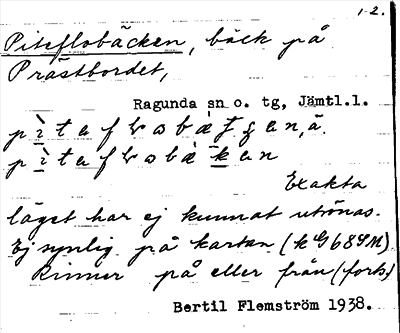 1-2.
Piteflobäcken, bäck på
Prästbordet,
Ragunda sn o. tg, Jämtl.l.
Exakta
läget har ej kunnat utrönas.
Ej synlig på kartan (k G 68 SM)
Rinner på eller från (forts)
Bertil Flemström 1938.